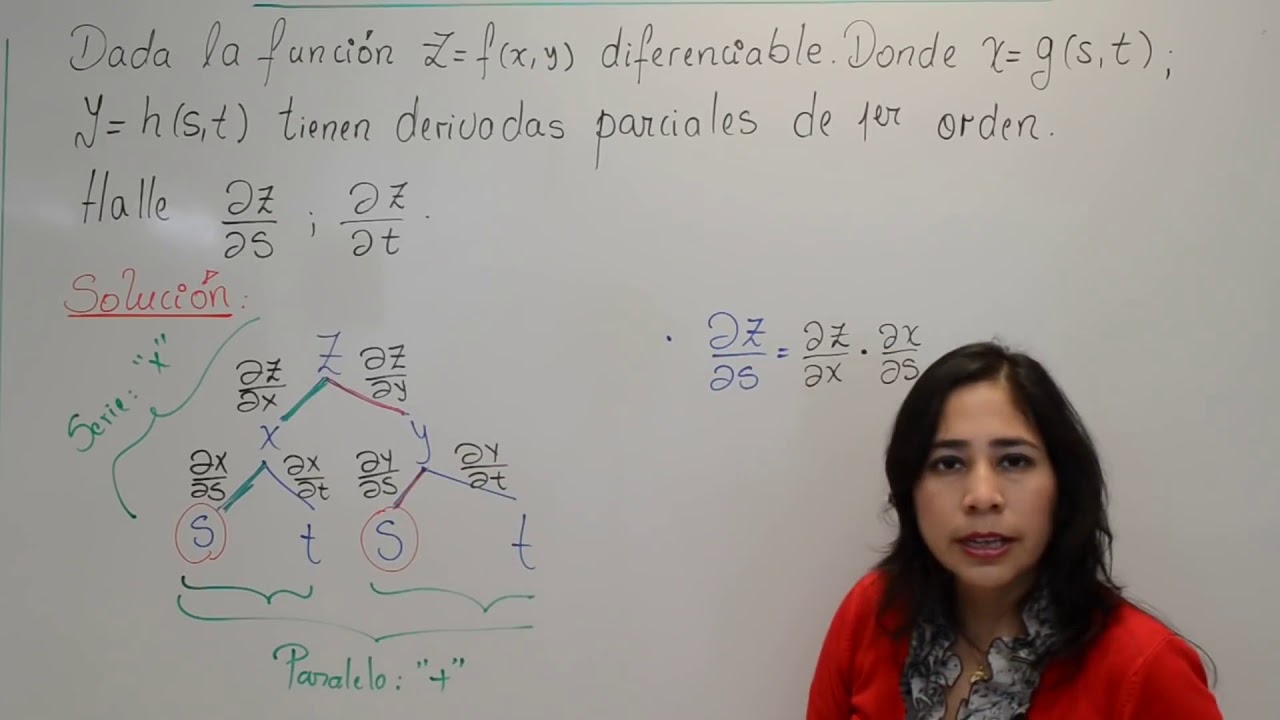 Dada la función Z=f(x,y) diferenciable. Donde x=g(s,t);
y=h(s,t) tienen derivadas parciales de 1er orden.
Halle ∂Z/∂S ; ∂Z/∂t .
Solución:
Serie: "×"
Z
∂Z/∂x ∂Z/∂y
x y
∂x/∂s ∂x/∂t ∂y/∂s ∂y/∂t
S t S t
Paralelo: "+"
· ∂Z/∂S = ∂Z/∂x · ∂x/∂S